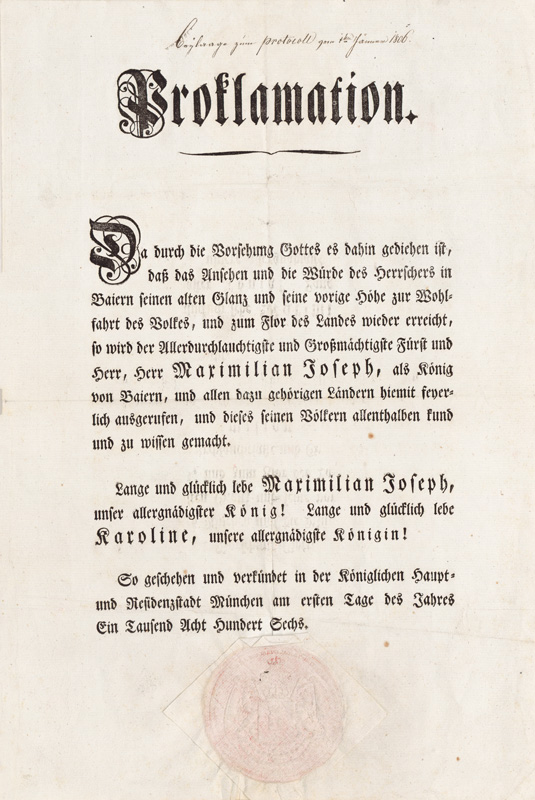 Beylaage zum protocoll vom 1ten Jänner 1806.
Proklamation.
Da durch die Vorsehung Gottes es dahin gediehen ist,
daß das Ansehen und die Würde des Herrschers in
Baiern seinen alten Glanz und seine vorige Höhe zur Wohl-
fahrt des Volkes, und zum Flor des Landes wieder erreicht,
so wird der Allerdurchlauchtigste und Großmächtigste Fürst und
Herr, Herr Maximilian Joseph, als König
von Baiern, und allen dazu gehörigen Ländern hiemit feyer-
lich ausgerufen, und dieses seinen Völkern allenthalben kund
und zu wissen gemacht.
Lange und glücklich lebe Maximilian Joseph,
unser allergnädigster König! Lange und glücklich lebe
Karoline, unsere allergnädigste Königin!
So geschehen und verkündet in der Königlichen Haupt-
und Residenzstadt München am ersten Tage des Jahres
Ein Tausend Acht Hundert Sechs.